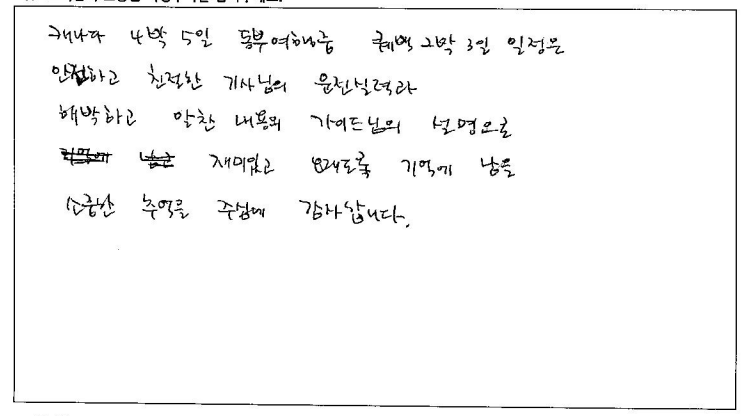 캐나다 4박 5일 동부여행중 퀘백 2박 3일 일정은
안전하고 친절한 기사님의 운전실력과
해박하고 알찬 내용의 가이드님의 설명으로
재미있고 오래도록 기억에 남을
소중한 추억을 주심에 감사합니다.